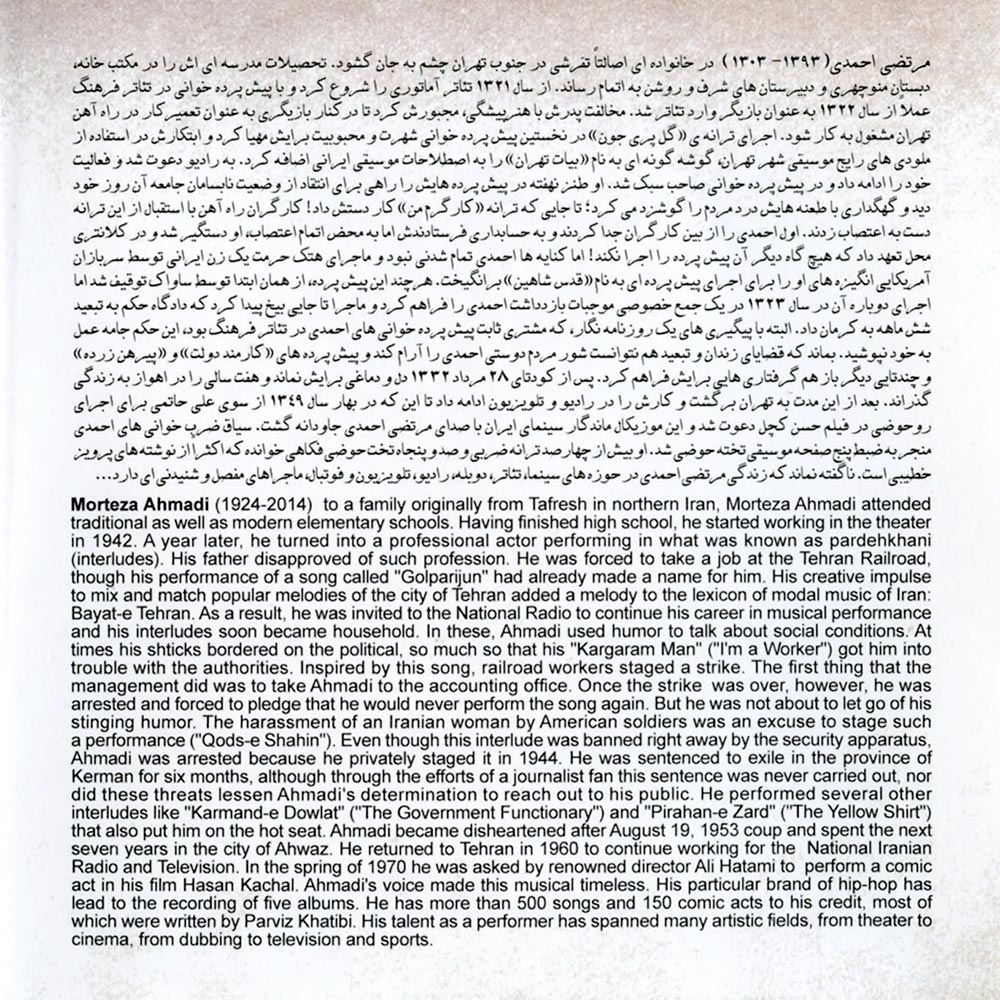 مرتضی احمدی(۱۳۹۳- ۱۳۰۳) در خانواده ای اصالتاً تفرشی در جنوب تهران چشم به جان گشود. تحصیلات مدرسه ای اش را در مکتب خانه،
دبستان منوچهری و دبیرستان های شرف و روشن به اتمام رساند. از سال ۱۳۲۱ تئاتر آماتوری را شروع کرد و با پیش پرده خوانی در تئاتر فرهنگ
عملا از سال ۱۳۲۲ به عنوان بازیگر وارد تئاتر شد. مخالفت پدرش با هنرپیشگی، مجبورش کرد تا در کنار بازیگری به عنوان تعمیرکار در راه آهن
تهران مشغول به کار شود. اجرای ترانه ی «گل پری جون» در نخستین پیش پرده خوانی شهرت و محبوبیت برایش مهیا کرد و ابتکارش در استفاده از
ملودی های رایج موسیقی شهر تهران، گوشه گونه ای به نام «بیات تهران» را به اصطلاحات موسیقی ایرانی اضافه کرد. به رادیو دعوت شد و فعالیت
خود را ادامه داد و در پیش پرده خوانی صاحب سبک شد. او طنز نهفته در پیش پرده هایش را راهی برای انتقاد از وضعیت نابسامان جامعه آن روز خود
دید و گهگداری با طعنه هایش درد مردم را گوشزد می کرد؛ تا جایی که ترانه «کارگرم من» کار دستش داد! کارگران راه آهن با استقبال از این ترانه
دست به اعتصاب زدند. اول احمدی را از بین کارگران جدا کردند و به حسابداری فرستادندش اما به محض اتمام اعتصاب، او دستگیر شد و در کلانتری
محل تعهد داد که هیچ گاه دیگر آن پیش پرده را اجرا نکند! اما کنایه ها احمدی تمام شدنی نبود و ماجرای هتک حرمت یک زن ایرانی توسط سربازان
آمریکایی انگیزه های او را برای اجرای پیش پرده ای به نام «قدس شاهین» برانگیخت. هرچند این پیش پرده، از همان ابتدا توسط ساواک توقیف شد اما
اجرای دوباره آن در سال ۱۳۲۳ در یک جمع خصوصی موجبات بازداشت احمدی را فراهم کرد و ماجرا تا جایی بیخ پیدا کرد که دادگاه حکم به تبعید
شش ماهه به کرمان داد. البته با پیگیری های یک روزنامه نگار، که مشتری ثابت پیش پرده خوانی های احمدی در تئاتر فرهنگ بود، این حکم جامه عمل
به خود نپوشید. بماند که قضایای زندان و تبعید هم نتوانست شور مردم دوستی احمدی را آرام کند و پیش پرده های «کارمند دولت» و «پیرهن زرده»
و چندتایی دیگر باز هم گرفتاری هایی برایش فراهم کرد. پس از کودتای ۲۸ مرداد ۱۳۳۲ دل و دماغی برایش نماند و هفت سالی را در اهواز به زندگی
گذراند. بعد از این مدت به تهران برگشت و کارش را در رادیو و تلویزیون ادامه داد تا این که در بهار سال ۱۳۴۹ از سوی علی حاتمی برای اجرای
روحوضی در فیلم حسن کچل دعوت شد و این موزیکال ماندگار سینمای ایران با صدای مرتضی احمدی جاودانه گشت. سیاق ضرب خوانی های احمدی
منجر به ضبط پنج صفحه موسیقی تخته حوضی شد. او بیش از چهارصد ترانه ضربی و صد و پنجاه تخت حوضی فکاهی خوانده که اکثرا از نوشته های پرویز
خطیبی است. ناگفته نماند که زندگی مرتضی احمدی در حوزه های سینما، تئاتر، دوبله، رادیو، تلویزیون و فوتبال، ماجراهای مفصل و شنیدنی ای دارد...
Morteza Ahmadi (1924-2014) to a family originally from Tafresh in northern Iran, Morteza Ahmadi attended
traditional as well as modern elementary schools. Having finished high school, he started working in the theater
in 1942. A year later, he turned into a professional actor performing in what was known as pardehkhani
(interludes). His father disapproved of such profession. He was forced to take a job at the Tehran Railroad,
though his performance of a song called "Golparijun" had already made a name for him. His creative impulse
to mix and match popular melodies of the city of Tehran added a melody to the lexicon of modal music of Iran:
Bayat-e Tehran. As a result, he was invited to the National Radio to continue his career in musical performance
and his interludes soon became household. In these, Ahmadi used humor to talk about social conditions. At
times his shticks bordered on the political, so much so that his "Kargaram Man" ("I'm a Worker") got him into
trouble with the authorities. Inspired by this song, railroad workers staged a strike. The first thing that the
management did was to take Ahmadi to the accounting office. Once the strike was over, however, he was
arrested and forced to pledge that he would never perform the song again. But he was not about to let go of his
stinging humor. The harassment of an Iranian woman by American soldiers was an excuse to stage such
a performance ("Qods-e Shahin"). Even though this interlude was banned right away by the security apparatus,
Ahmadi was arrested because he privately staged it in 1944. He was sentenced to exile in the province of
Kerman for six months, although through the efforts of a journalist fan this sentence was never carried out, nor
did these threats lessen Ahmadi's determination to reach out to his public. He performed several other
interludes like "Karmand-e Dowlat" ("The Government Functionary") and "Pirahan-e Zard" ("The Yellow Shirt")
that also put him on the hot seat. Ahmadi became disheartened after August 19, 1953 coup and spent the next
seven years in the city of Ahwaz. He returned to Tehran in 1960 to continue working for the National Iranian
Radio and Television. In the spring of 1970 he was asked by renowned director Ali Hatami to perform a comic
act in his film Hasan Kachal. Ahmadi's voice made this musical timeless. His particular brand of hip-hop has
lead to the recording of five albums. He has more than 500 songs and 150 comic acts to his credit, most of
which were written by Parviz Khatibi. His talent as a performer has spanned many artistic fields, from theater to
cinema, from dubbing to television and sports.